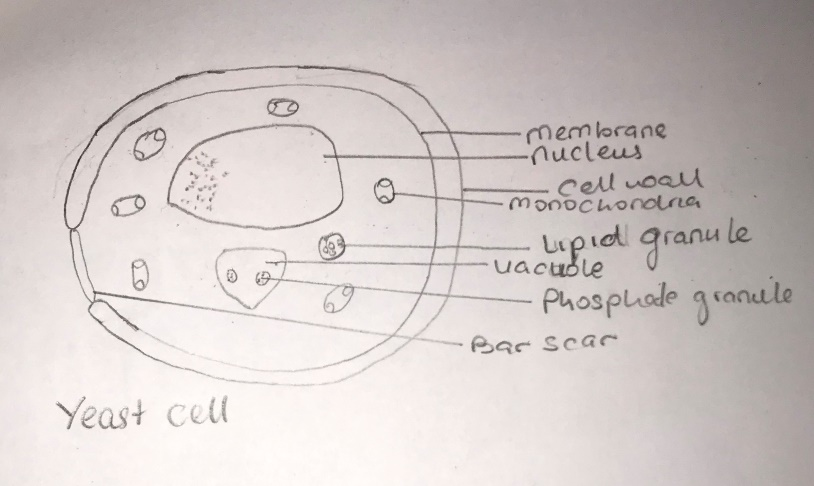 membrane
nucleus
cell wall
monochondria
Lipid granule
vacuole
Phosphode granule
Bar scar
Yeast cell